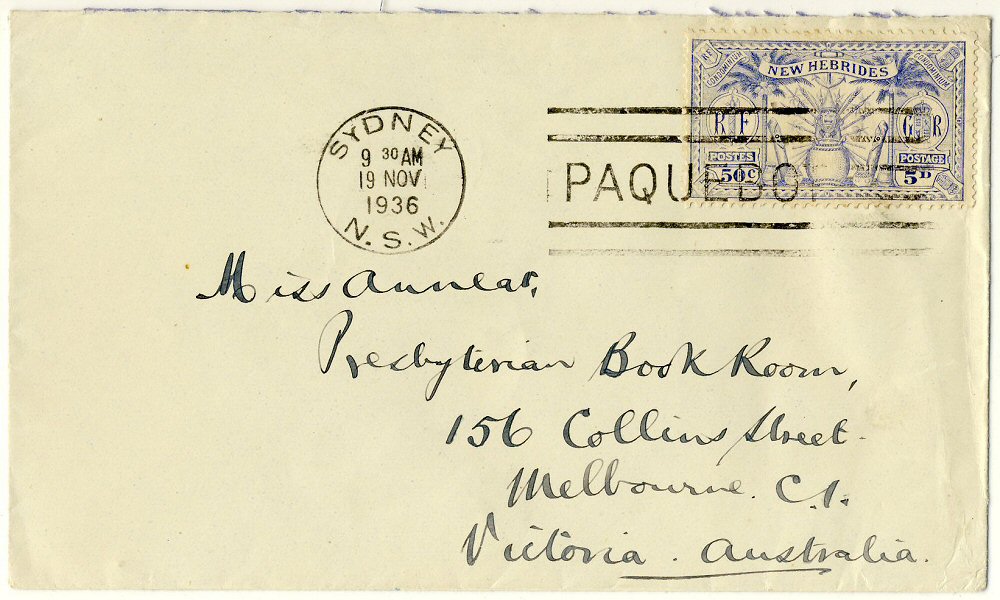 SYDNEY
9 30 AM
19 NOV
1936
N.S.W.
PAQUEBO
RF
CONDOMINIUM
NEW HEBRIDES
CONDOMINIUM
R F
G R
POSTES
POSTAGE
50c
5D
Miss Annear,
Presbyterian Book Room,
156 Collins Street.
Melbourne. C.1.
Victoria. Australia.